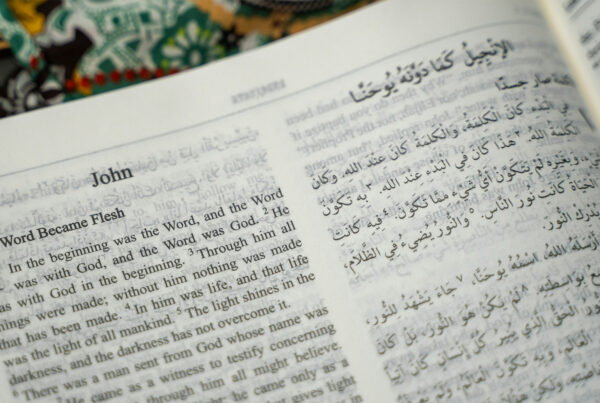 John
Word Became Flesh
In the beginning was the Word, and the Word
was with God, and the Word was God. 2 He
as with God in the beginning. 3 Through him all
ings were made; without him nothing was made
that has been made. 4 In him was life, and that life
was the light of all mankind. 5 The light shines in the
darkness, and the darkness has not overcome it.
6 There was a man sent from God whose name was
He came as a witness to testify concerning
through him all might believe.
ght; he came only as a
gives light
الإنجيل كما دونه يوحنا
صار جسدا
في البدء كان الكلمة، والكلمة كان عند الله. وكان
الكلمة الله. هذا كان في البدء عند الله. به تكون
وبغيره لم يتكون أي شيء مما تكون. فيه كانت
الحياة كانت نور الناس. والنور يضيء في الظلام،
يدرك النور.
أرسله الله، اسمه يوحنا، جاء يشهد للنور،
بواسطته. لم يكن هو النور، بل كان
النور الحق الذي ينير كل إنسان كان آتيا
العالم، وبه تكون العالم، ولم